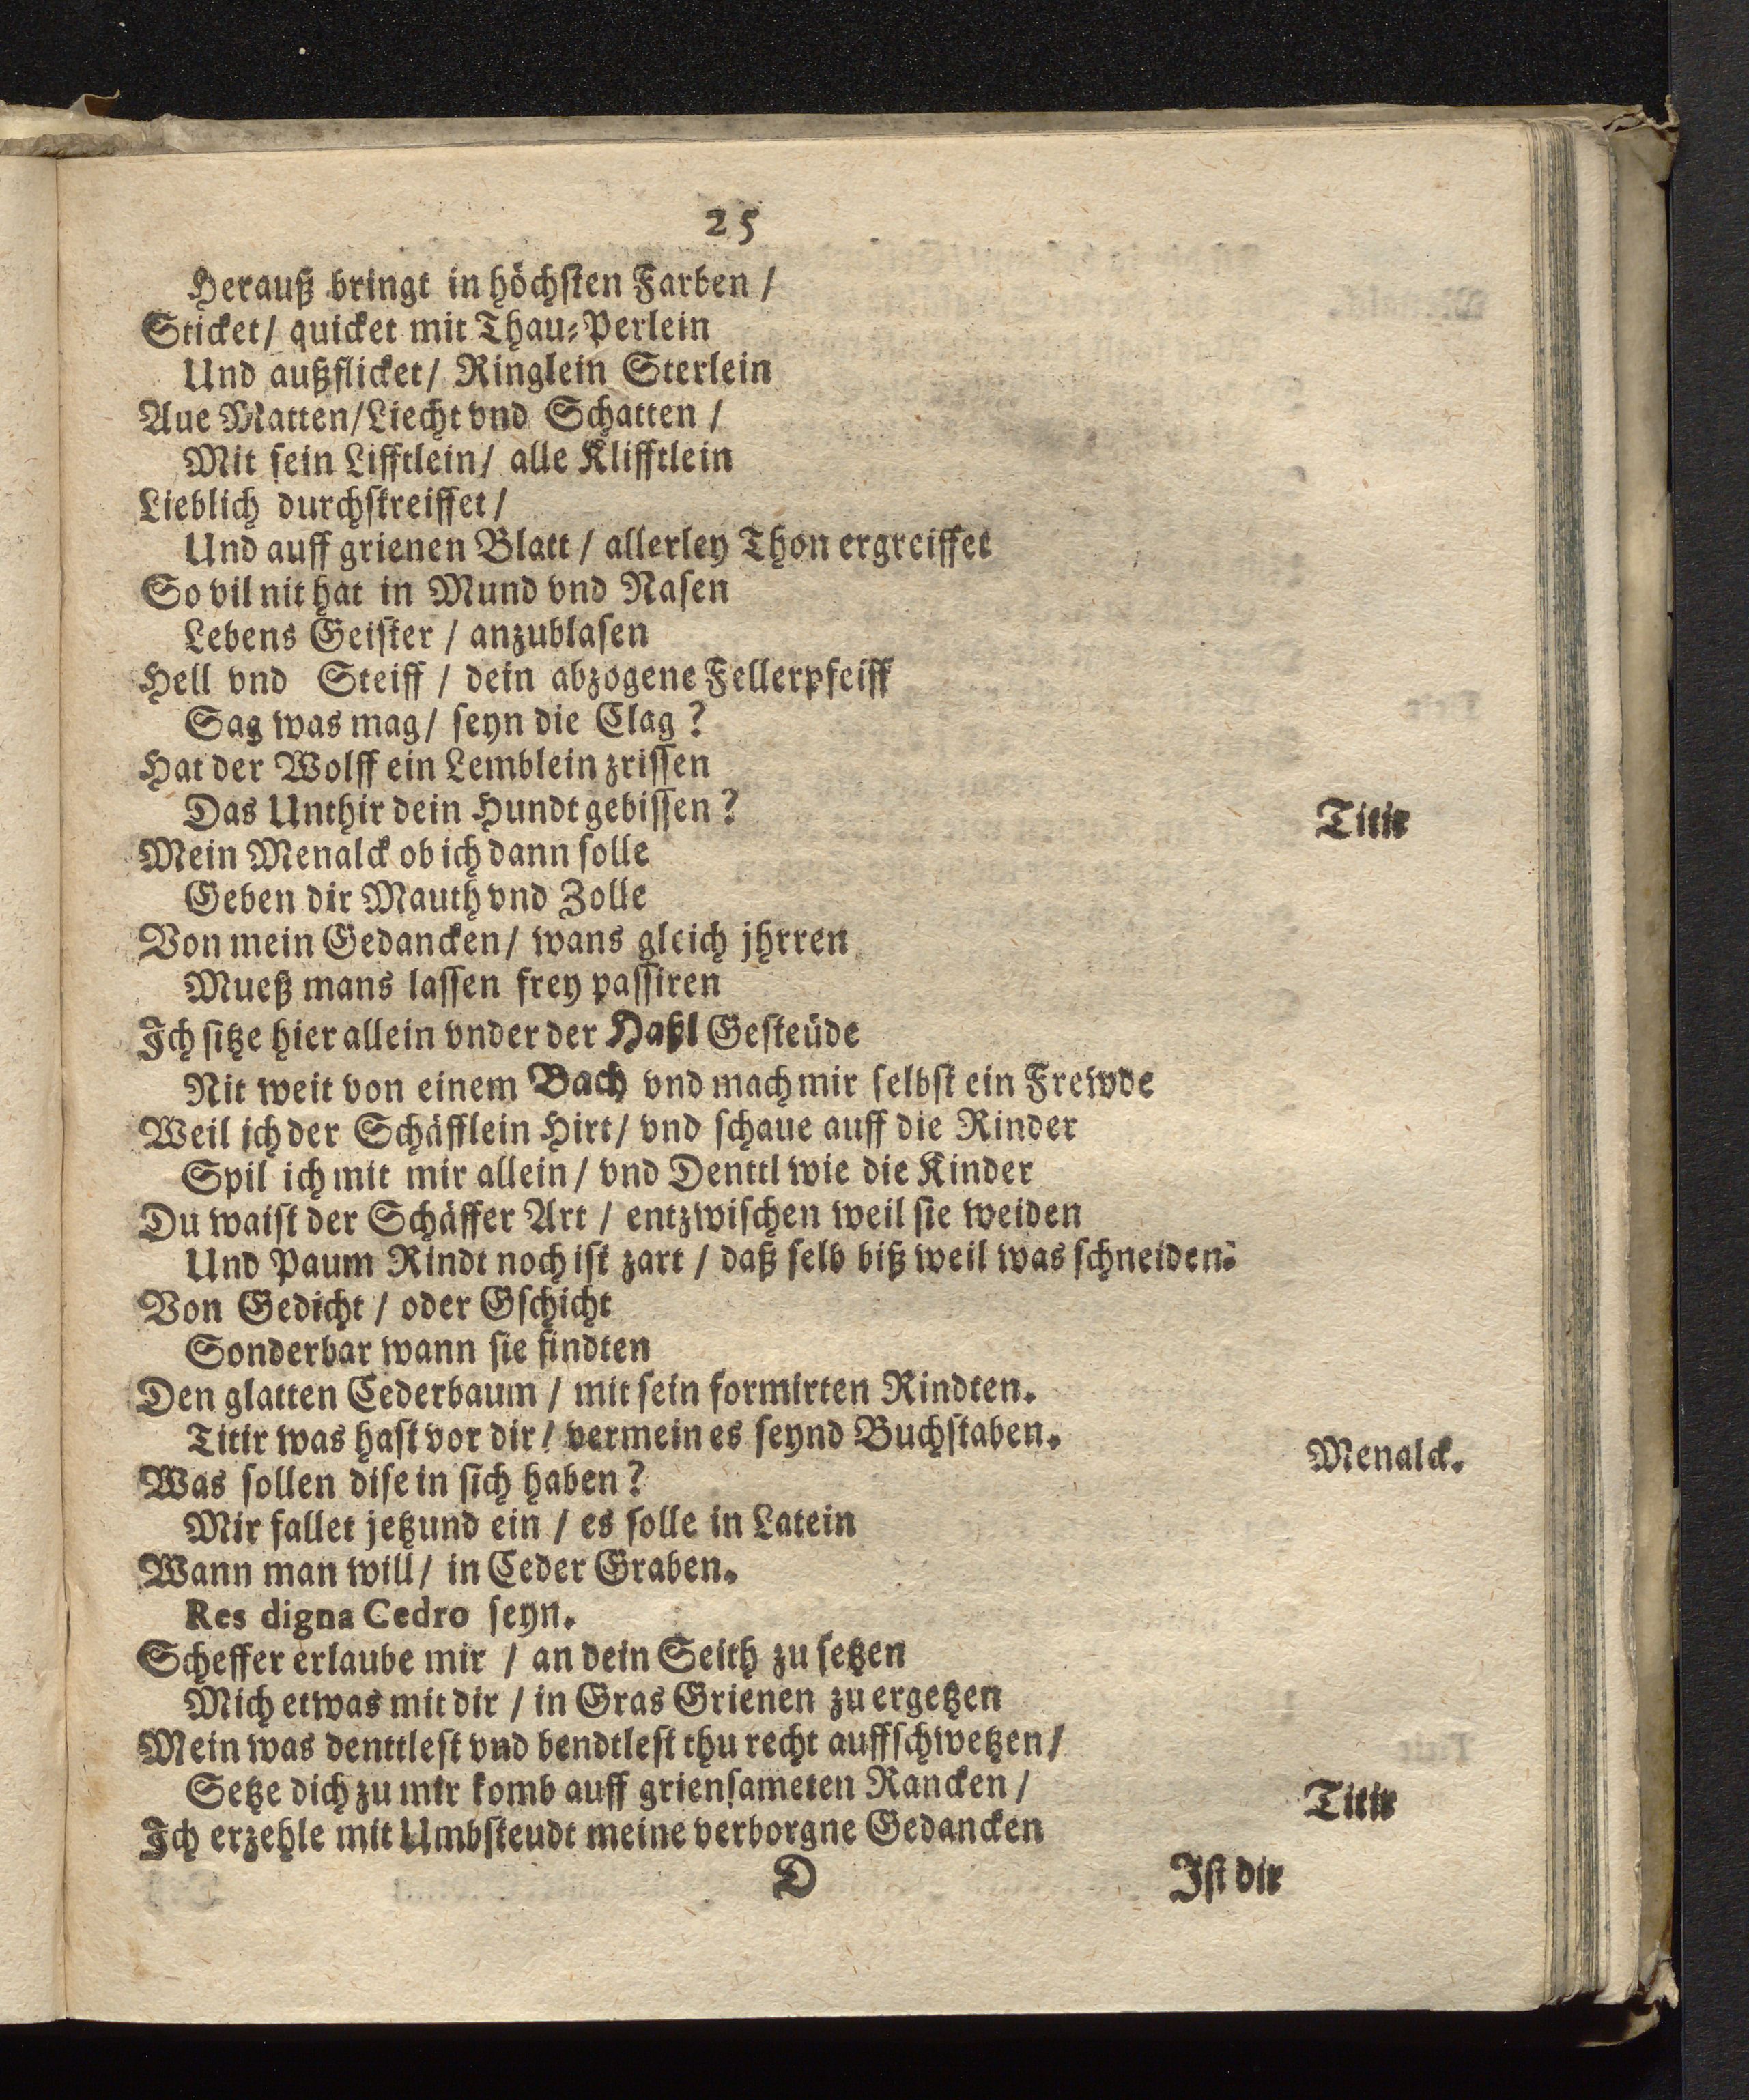 25
Herauß bringt in höchsten Farben /
Sticket/ quicket mit Thau-Perlein
Und außflicket/ Ringlein Sterlein
Aue Matten/Liecht vnd Schatten /
Mit sein Lifftlein/ alle Klifftlein
Lieblich durchstreiffet/
Und auff grienen Blatt / allerley Thon ergreiffet
So vil nit hat in Mund vnd Nasen
Lebens Geister / anzublasen
Hell vnd Steiff / dein abzogene Fellerpfeiff
Sag was mag/ seyn die Clag?
Hat der Wolff ein Lemblein zrissen
Das Unthir dein Hundt gebissen?
Titir
Mein Menalck ob ich dann solle
Geben dir Mauth vnd Zolle
Von mein Gedancken/ wans gleich jhrren
Mueß mans lassen frey passiren
Ich sitze hier allein vnder der Haßl Gesteüde
Nit weit von einem Bach vnd mach mir selbst ein Frewde
Weil ich der Schäfflein Hirt/ vnd schaue auff die Rinder
Spil ich mit mir allein / vnd Denttl wie die Kinder
Du waist der Schäffer Art / entzwischen weil sie weiden
Und Paum Rindt noch ist zart / daß selb biß weil was schneiden.
Von Gedicht / oder Gschicht
Sonderbar wann sie findten
Den glatten Cederbaum / mit sein formirten Rindten.
Titir was hast vor dir/ vermein es seynd Buchstaben.
Menalck.
Was sollen dise in sich haben?
Mir fallet jetzund ein / es solle in Latein
Wann man will/ in Ceder Graben.
Res digna Cedro seyn.
Scheffer erlaube mir / an dein Seith zu setzen
Mich etwas mit dir / in Gras Grienen zu ergetzen
Mein was denttlest vnd bendtlest thu recht auffschwetzen/
Setze dich zu mir komb auff griensameten Rancken /
Titir
Ich erzehle mit Umbsteudt meine verborgne Gedancken
D
Ist dir